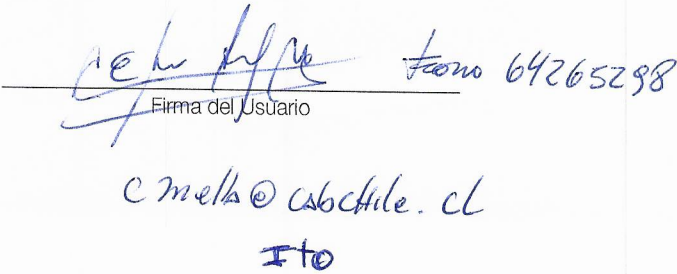 Fono 64265298
Firma del Usuario
cmella@cabchile.cl
Ito